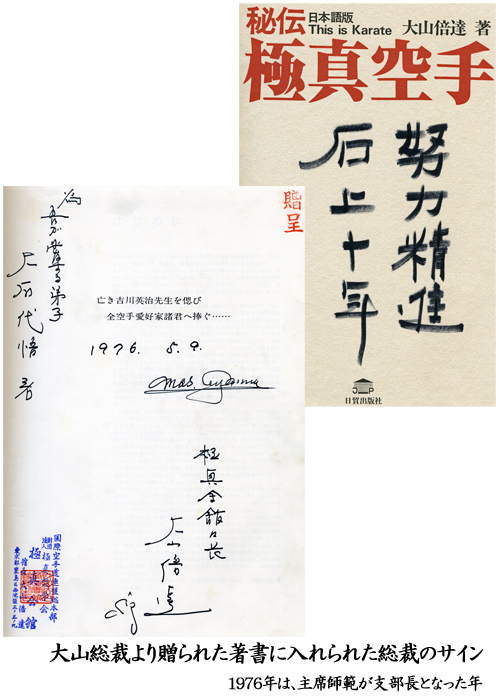 秘伝 日本語版
This is Karate
大山倍達 著
極真空手
努力精進
石上十年
JP
日貿出版社
贈呈
為
吾が愛する弟子
大石代悟 君
亡き吉川英治先生を偲び
全空手愛好家諸君へ捧ぐ……
1976. 5. 9.
Mas. Oyama
極真会館々長
大山倍達
国際空手道連盟総本部
財団法人 極真奨学会
極真会館
館長 大山倍達
大山総裁より贈られた著書に入れられた総裁のサイン
1976年は、主席師範が支部長となった年